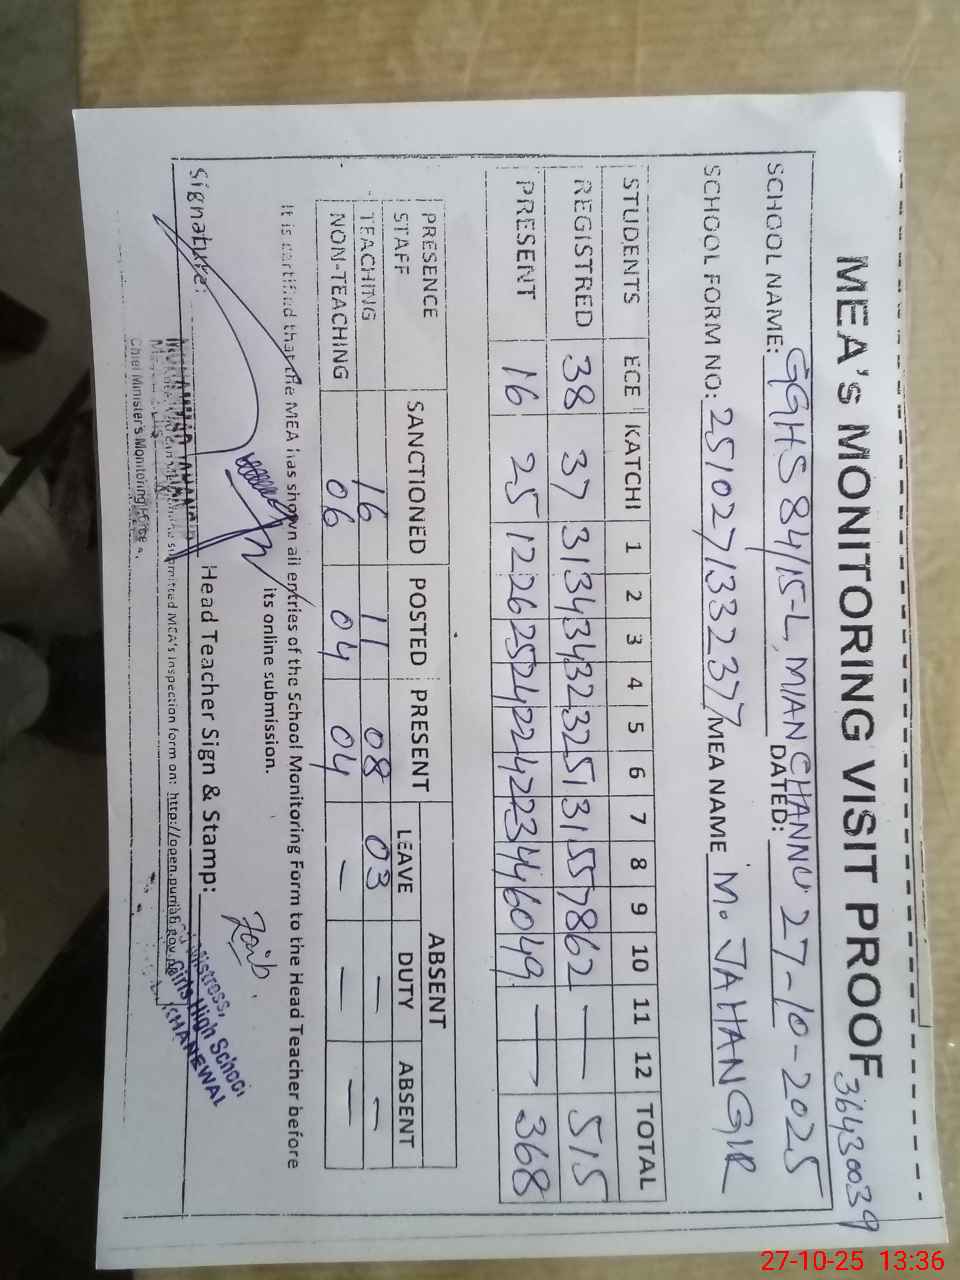 MEA's MONITORING VISIT PROOF 36430039
SCHOOL NAME: GGHS 84/15-L, MIAN CHANNU DATED: 27-10-2025
SCHOOL FORM NO: 251027133237 MEA NAME M. JAHANGIR
STUDENTS ECE KATCHI 1 2 3 4 5 6 7 8 9 10 11 12 TOTAL
REGISTRED 38 37 31 34 34 32 32 51 31 55 78 62 — — 515
PRESENT 16 25 12 26 25 24 22 42 23 44 60 49 — — 368
PRESENCE SANCTIONED POSTED PRESENT ABSENT
STAFF LEAVE DUTY ABSENT
TEACHING 16 11 08 03 — —
NON-TEACHING 06 04 04 — — —
It is certified that the MEA has shown all entries of the School Monitoring Form to the Head Teacher before
its online submission.
Signature: Head Teacher Sign & Stamp:
mistress,
Girls High School
KHANEWAL
submitted MEA's inspection form on: http://open.punjab.gov.pk
Chief Minister's Monitoring
27-10-25 13:36